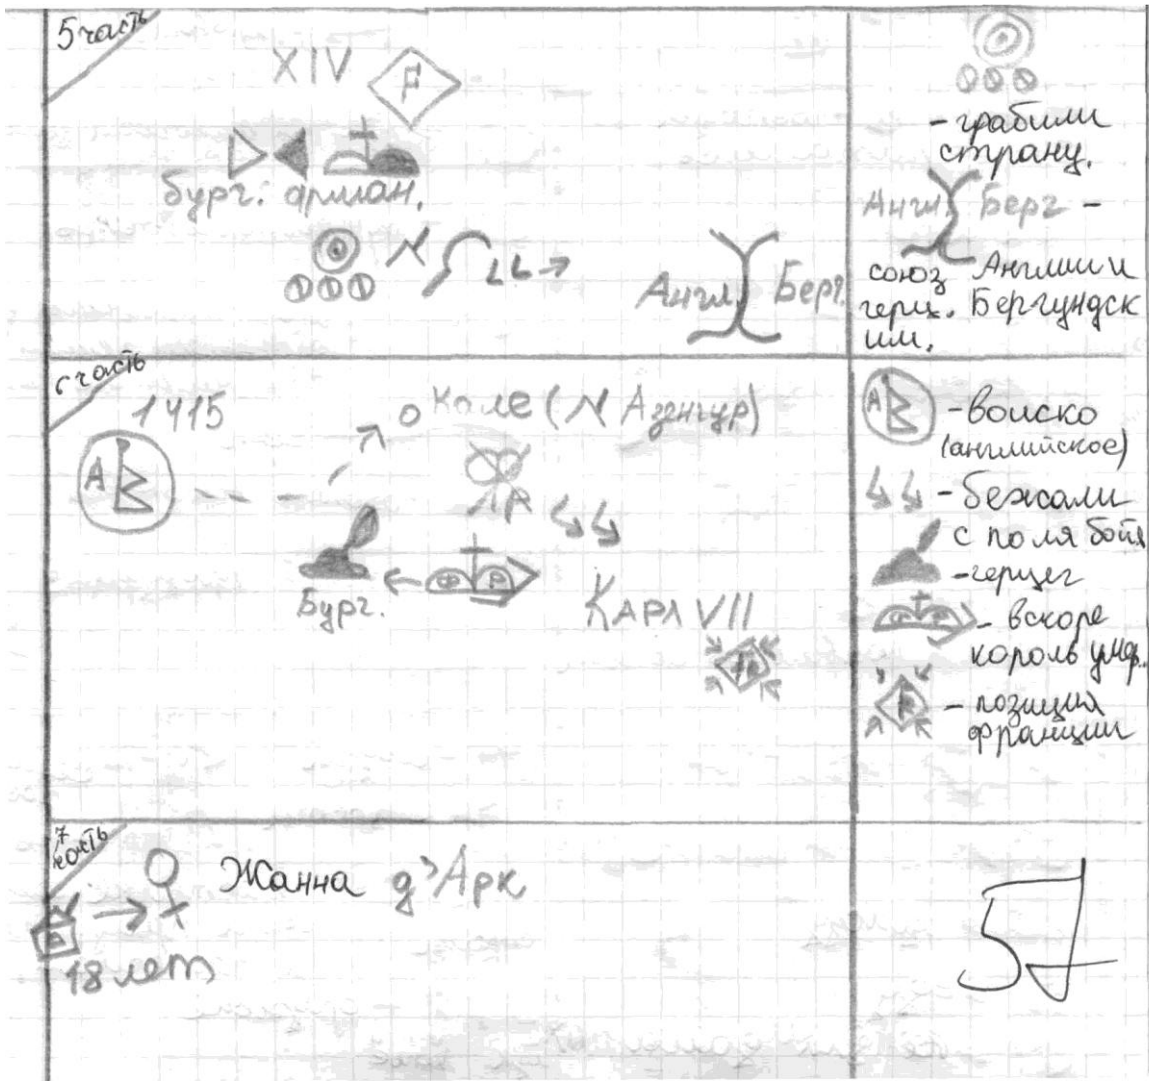 5 часть
XIV
F
бург. арман.
Англ. Берг.
- грабили
страну.
Англ. Берг -
союз Англии и
герц. Бергундск
им.
часть
1415
А
о Кале (N Азенкур)
Бург.
КАРЛ VII
А - войско
(английское)
- бежали
с поля боя
- герцег
- вскоре
король умер.
- позиция
франции
7 часть
Жанна д'Арк
18 лет
5